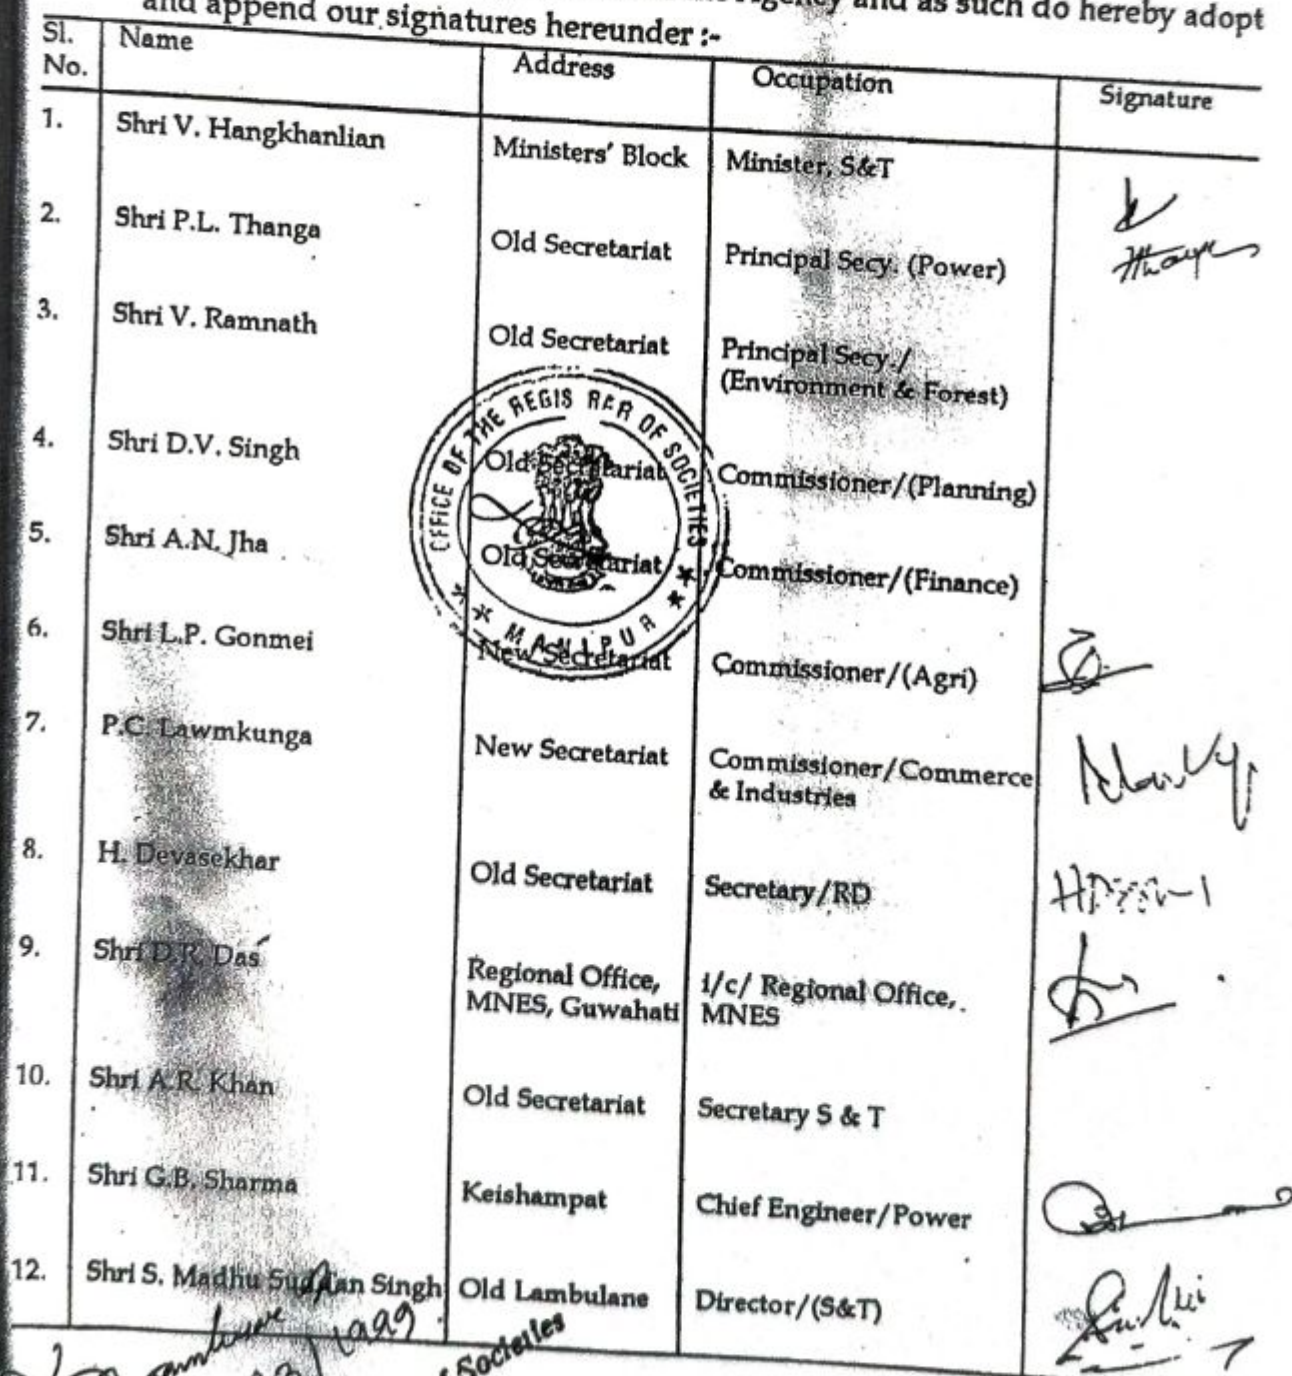 Agency and as such do hereby adopt
and append our signatures hereunder :-
Sl. No. Name Address Occupation Signature
1. Shri V. Hangkhanlian Ministers' Block Minister, S&T
2. Shri P.L. Thanga Old Secretariat Principal Secy. (Power)
3. Shri V. Ramnath Old Secretariat Principal Secy./
(Environment & Forest)
4. Shri D.V. Singh Old Secretariat Commissioner/(Planning)
5. Shri A.N. Jha Old Secretariat Commissioner/(Finance)
6. Shri L.P. Gonmei New Secretariat Commissioner/(Agri)
7. P.C. Lawmkunga New Secretariat Commissioner/Commerce
& Industries
8. H. Devasekhar Old Secretariat Secretary/RD
9. Shri D.R. Das Regional Office, i/c/ Regional Office,
MNES, Guwahati MNES
10. Shri A.R. Khan Old Secretariat Secretary S & T
11. Shri G.B. Sharma Keishampat Chief Engineer/Power
12. Shri S. Madhu Sudan Singh Old Lambulane Director/(S&T)
OFFICE OF THE REGIS RAR OF SOCIETIES
MANIPUR
1999
Societies